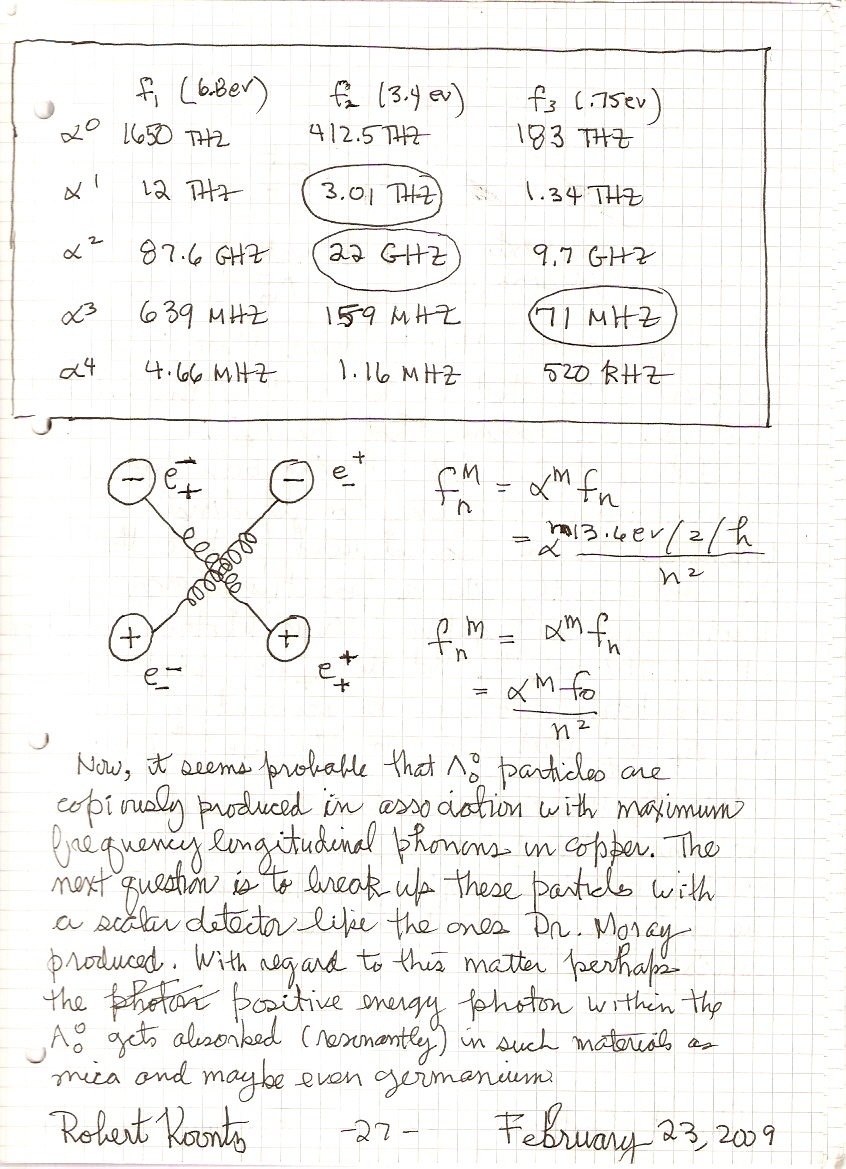 f₁ (6.8ev) f₂ (3.4 ev) f₃ (.75ev)
α⁰ 1650 THZ 412.5 THZ 183 THZ
α¹ 12 THZ 3.01 THZ 1.34 THZ
α² 87.6 GHZ 22 GHZ 9.7 GHZ
α³ 639 MHZ 159 MHZ 71 MHZ
α⁴ 4.66 MHZ 1.16 MHZ 520 KHZ
− e⁻₊ − e⁺₋
fₙᴹ = αᵐ fₙ
= αᵐ 13.6ev/2/h
n²
+ e⁻₋ + e⁺₊
fₙᵐ = αᵐ fₙ
= αᴹ f₀
n²
Now, it seems probable that Λ⁰₀ particles are
copiously produced in association with maximum
frequency longitudinal phonons in copper. The
next question is to break up these particles with
a scalar detector like the ones Dr. Moray
produced. With regard to this matter perhaps
the photon positive energy photon within the
Λ⁰₀ gets absorbed (resonantly) in such materials as
mica and maybe even germanium.
Robert Koontz -27- February 23, 2009